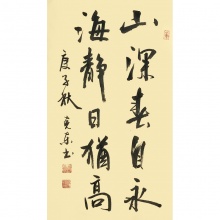 山深春自永
海静日猶高
庚子秋